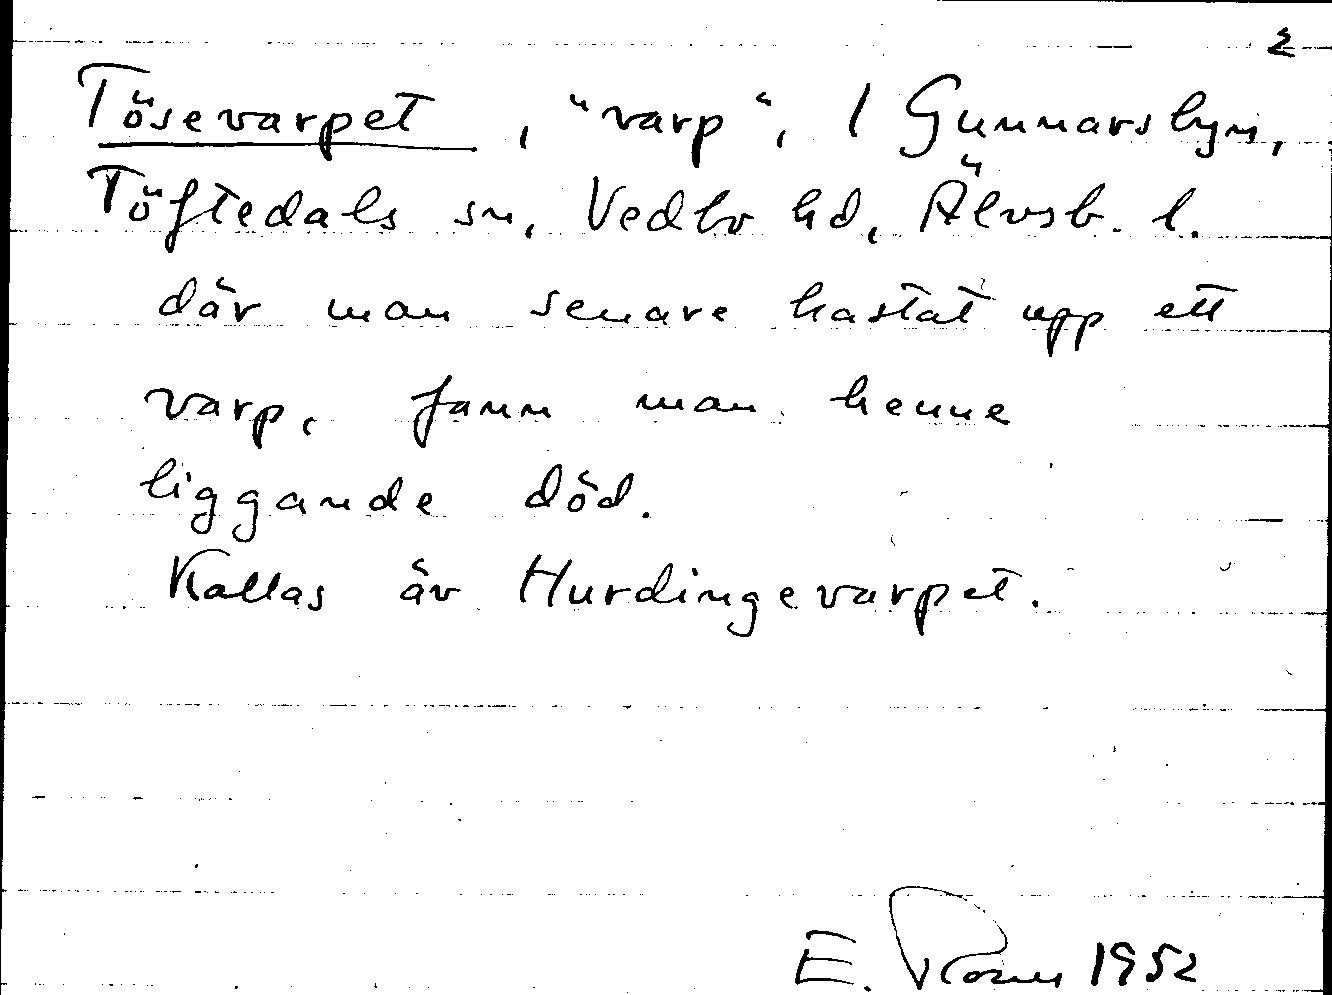 2
Tösevarpet, "varp", / Gunnarsbyn,
Töftedals sn, Vedbo hd, Älvsb. l.
där man senare kastat upp ett
varp, fann man henne
liggande död.
Kallas äv Hurdingevarpet.
E. 1952